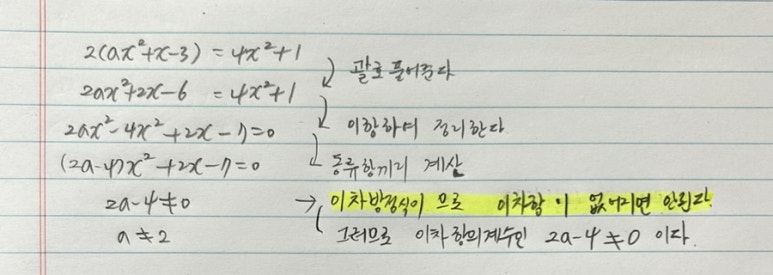 2(ax²+x-3) = 4x²+1
괄호 풀어준다
2ax²+2x-6 = 4x²+1
이항하여 정리한다
2ax²-4x²+2x-7=0
동류항끼리 계산
(2a-4)x²+2x-7=0
2a-4≠0 → 이차방정식이 므로 이차항이 없어지면 안된다.
a≠2 그러므로 이차항의계수인 2a-4≠0 이다.